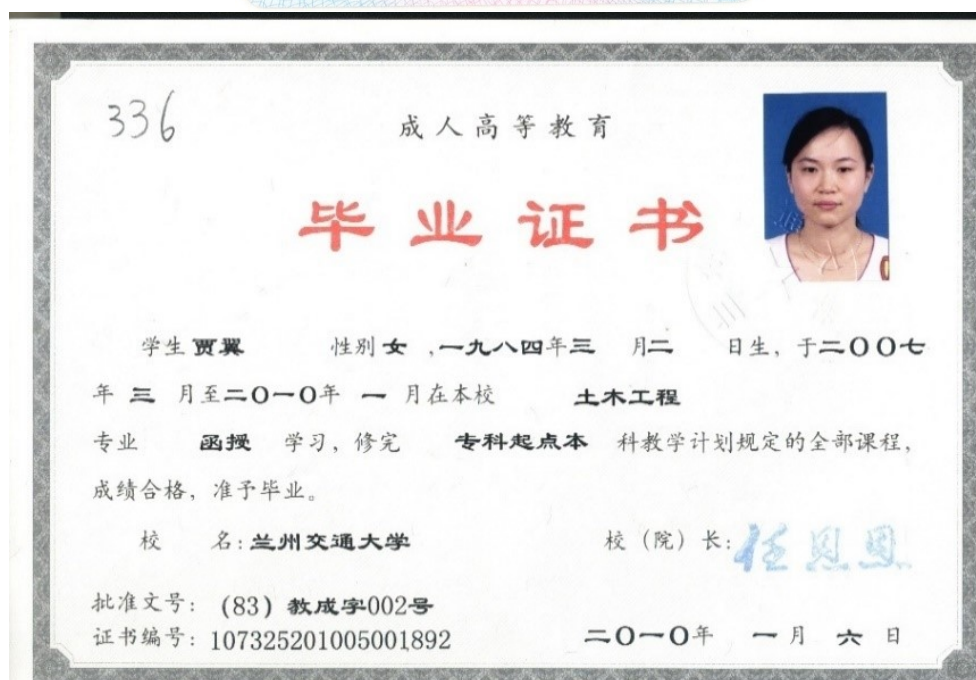 336
成人高等教育
毕业证书
学生 贾翼 性别 女 ,一九八四年 三 月二 日生, 于二〇〇七
年 三 月至二〇一〇年 一 月在本校 土木工程
专业 函授 学习, 修完 专科起点本 科教学计划规定的全部课程,
成绩合格, 准予毕业。
校 名: 兰州交通大学 校（院）长: 任恩恩
批准文号: (83) 教成字002号
证书编号: 107325201005001892 二〇一〇年 一 月 六 日